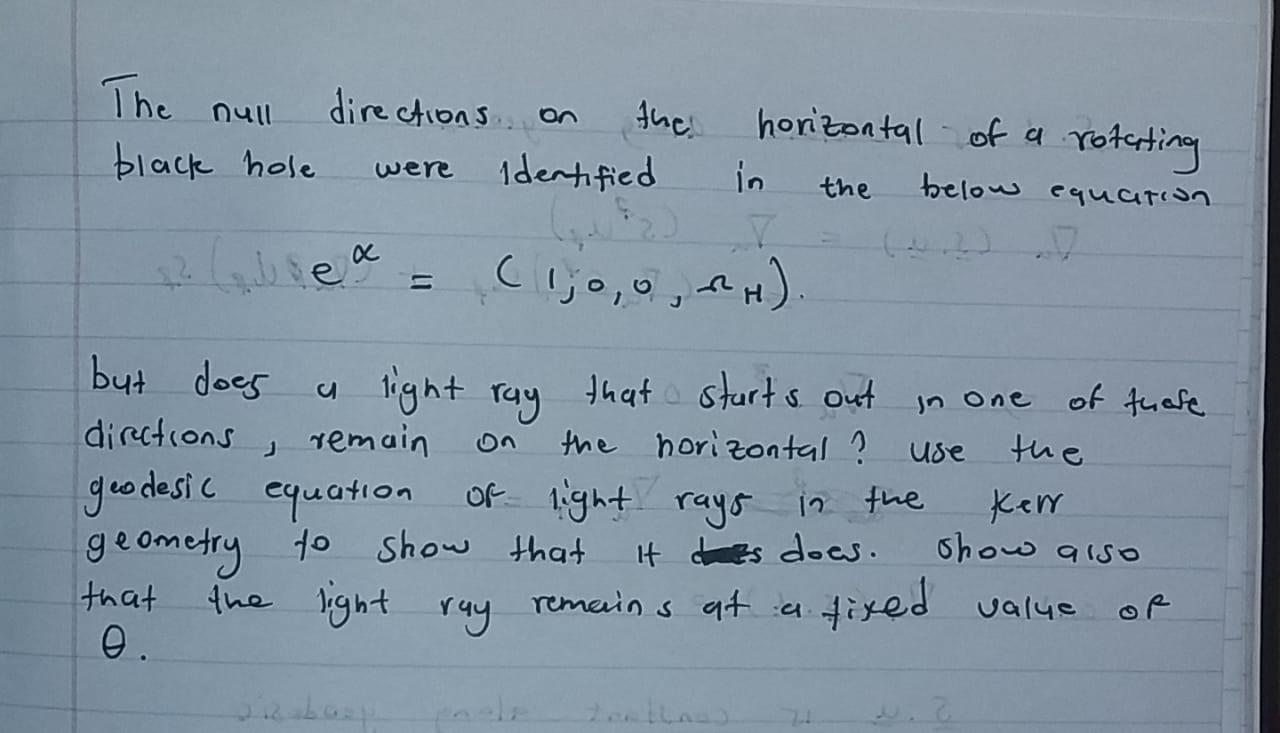 The null directions on the horizontal of a rotating
black hole were identified in the below equation
e^α = (1, 0, 0, Ω_H).
but does a light ray that starts out in one of these
directions, remain on the horizontal? use the
geodesic equation of light rays in the Kerr
geometry to show that it does. show also
that the light ray remains at a fixed value of
θ.